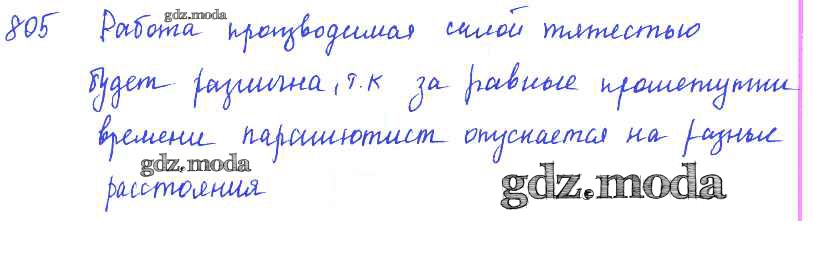 gdz.moda
805 Работа производимая силой тяжестью
будет различна, т.к за равные промежутки
времени парашютист опускается на разные
gdz.moda
расстояния
gdz.moda